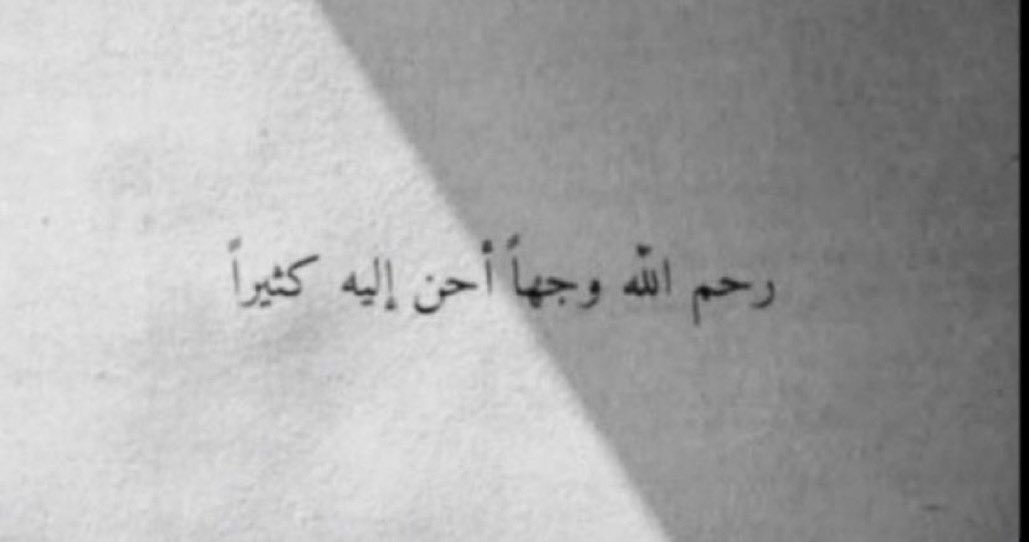 رحم الله وجهاً أحن إليه كثيراً